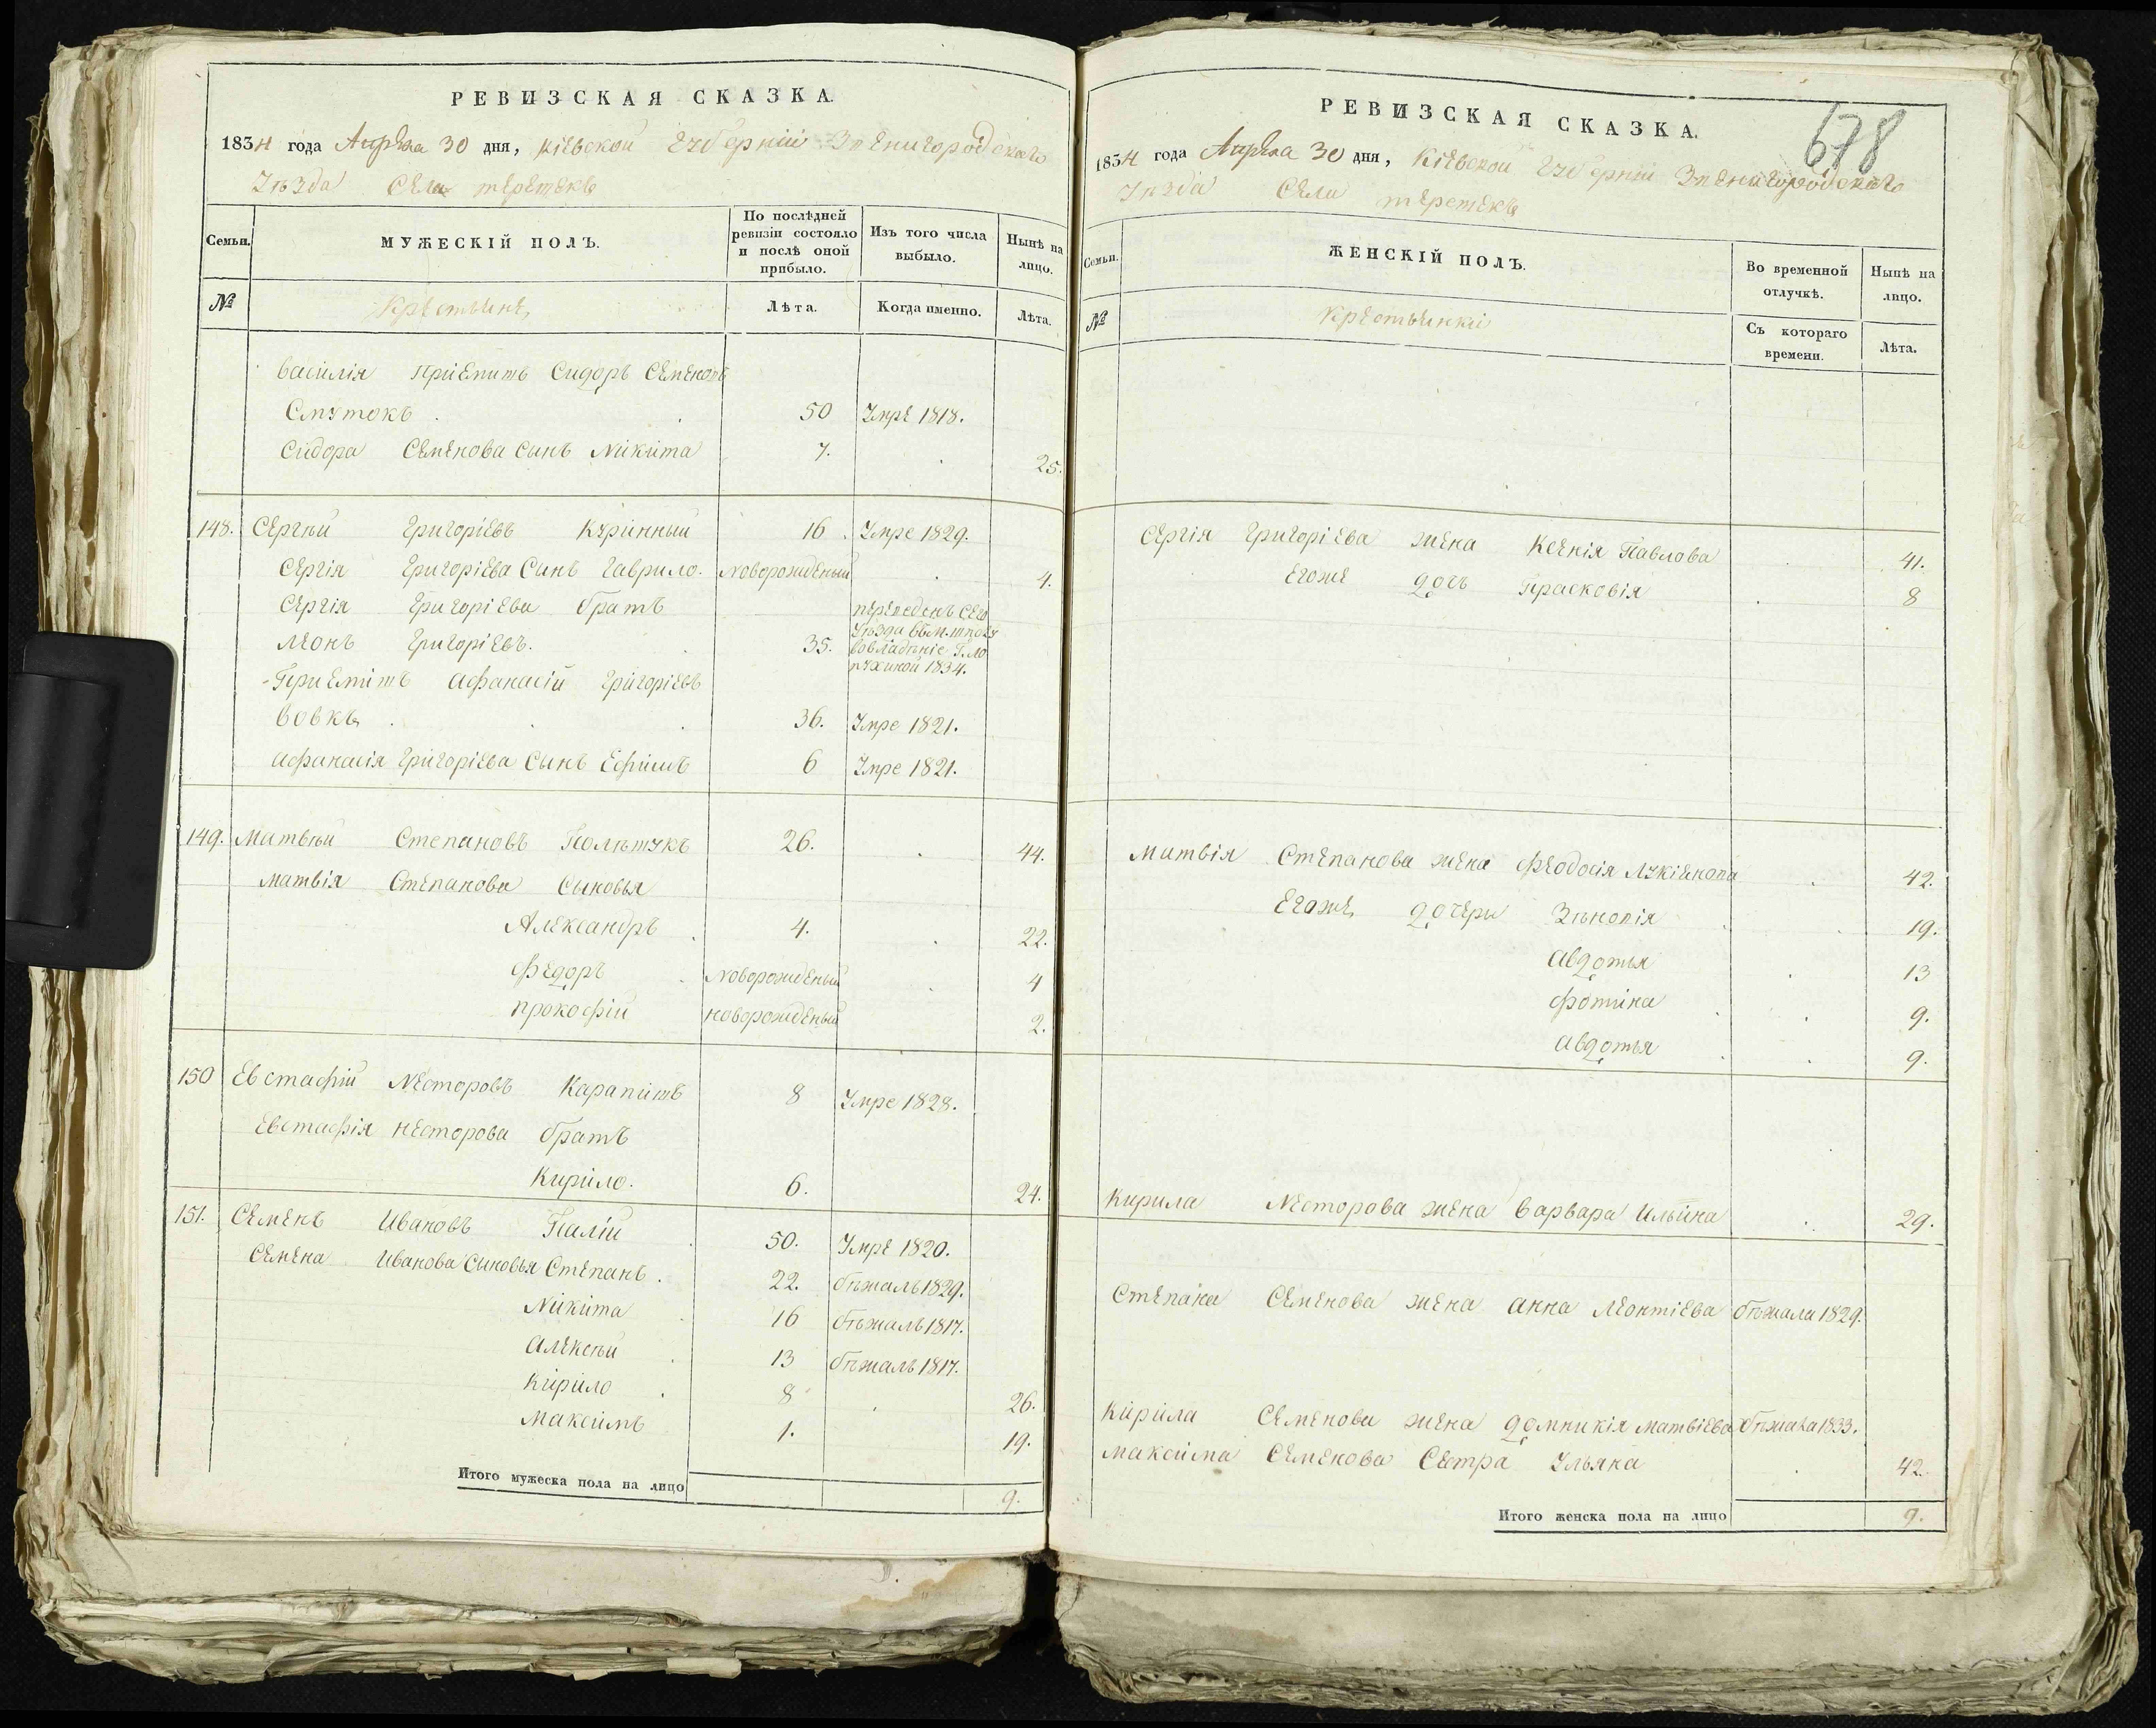 РЕВИЗСКАЯ СКАЗКА.
1834 года Апреля 30 дня, Кіевской Губерніи Звенигородскаго
Уѣзда Села
Семьи.
МУЖЕСКІЙ ПОЛЪ.
По послѣдней
ревизіи состояло
и послѣ оной
прибыло.
Изъ того числа
выбыло.
Нынѣ на
лицо.
№
Крестьяне
Лѣта.
Когда именно.
Лѣта.
Василія Сидоръ Семеновъ
Смутокъ 50 Умре 1818.
Сидора Семенова Сынъ Никита 7. 25.
148. Сергѣй Григоріевъ Курінный 16 Умре 1829.
Сергія Григоріева Сынъ Гаврило. Новорожденый 4.
Сергія Григоріева братъ переведенъ Сего
Уѣзда
Леонъ Григоріевъ. 35. во владѣніе Г. Ло
пухиной 1834.
Афанасій Григоріевъ
Вовкъ 36. Умре 1821.
Афанасія Григоріева Сынъ Ефимъ 6 Умре 1821.
149. Матвѣй Степановъ Полѣтукъ 26. 44.
Матвія Степанова Сыновья
Александръ 4. 22.
Федоръ Новорожденый 4
Прокофій новорожденый 2.
150 Евстафій Несторовъ Карапитъ 8 Умре 1828.
Евстафія Несторова братъ
Кирило. 6. 24.
151. Семенъ Ивановъ Палій 50. Умре 1820.
Семена Иванова Сыновья Степанъ. 22. бѣжалъ 1829.
Никита 16 бѣжалъ 1817.
Алексѣй 13 бѣжалъ 1817.
Кирило 8 26.
Максимъ 1. 19.
Итого мужеска пола на лицо 9.
РЕВИЗСКАЯ СКАЗКА.
678
1834 года Апреля 30 дня, Кіевской Губерніи Звенигородскаго
Уѣзда Села
Семьи.
ЖЕНСКІЙ ПОЛЪ.
Во временной
отлучкѣ.
Нынѣ на
лицо.
№
Крестьянки
Съ котораго
времени.
Лѣта.
Сергія Григоріева жена Ксенія Павлова 41.
Егоже дочь Прасковія 8
Матвія Степанова жена Феодосія Лукіянова 42.
Егоже дочери Зѣновія 19.
Авдотья 13
Фотина 9.
Авдотья 9.
Кирила Несторова жена Варвара Ильина 29.
Степана Семенова жена Анна Леонтіева бѣжала 1829.
Кирила Семенова жена Домникія Матвіева бѣжала 1833.
Максима Семенова Сестра Ульяна 42.
Итого женска пола на лицо 9.